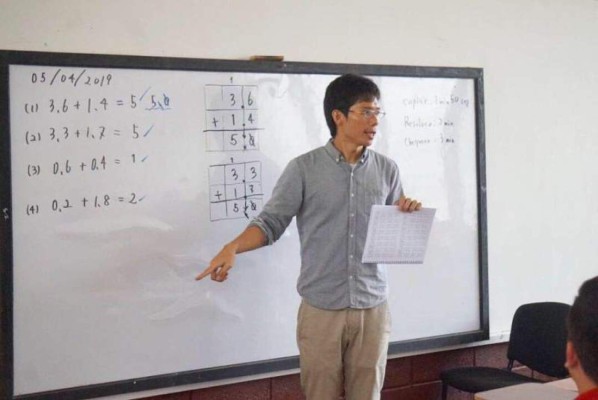 05/04/2019
(1) 3.6 + 1.4 = 5 ✓ 5.0
(2) 3.3 + 1.7 = 5 ✓
(3) 0.6 + 0.4 = 1 ✓
(4) 0.2 + 1.8 = 2 ✓
1
3.6
+ 1.4
5.0
1
3.3
+ 1.7
5.0
1 min
2 min